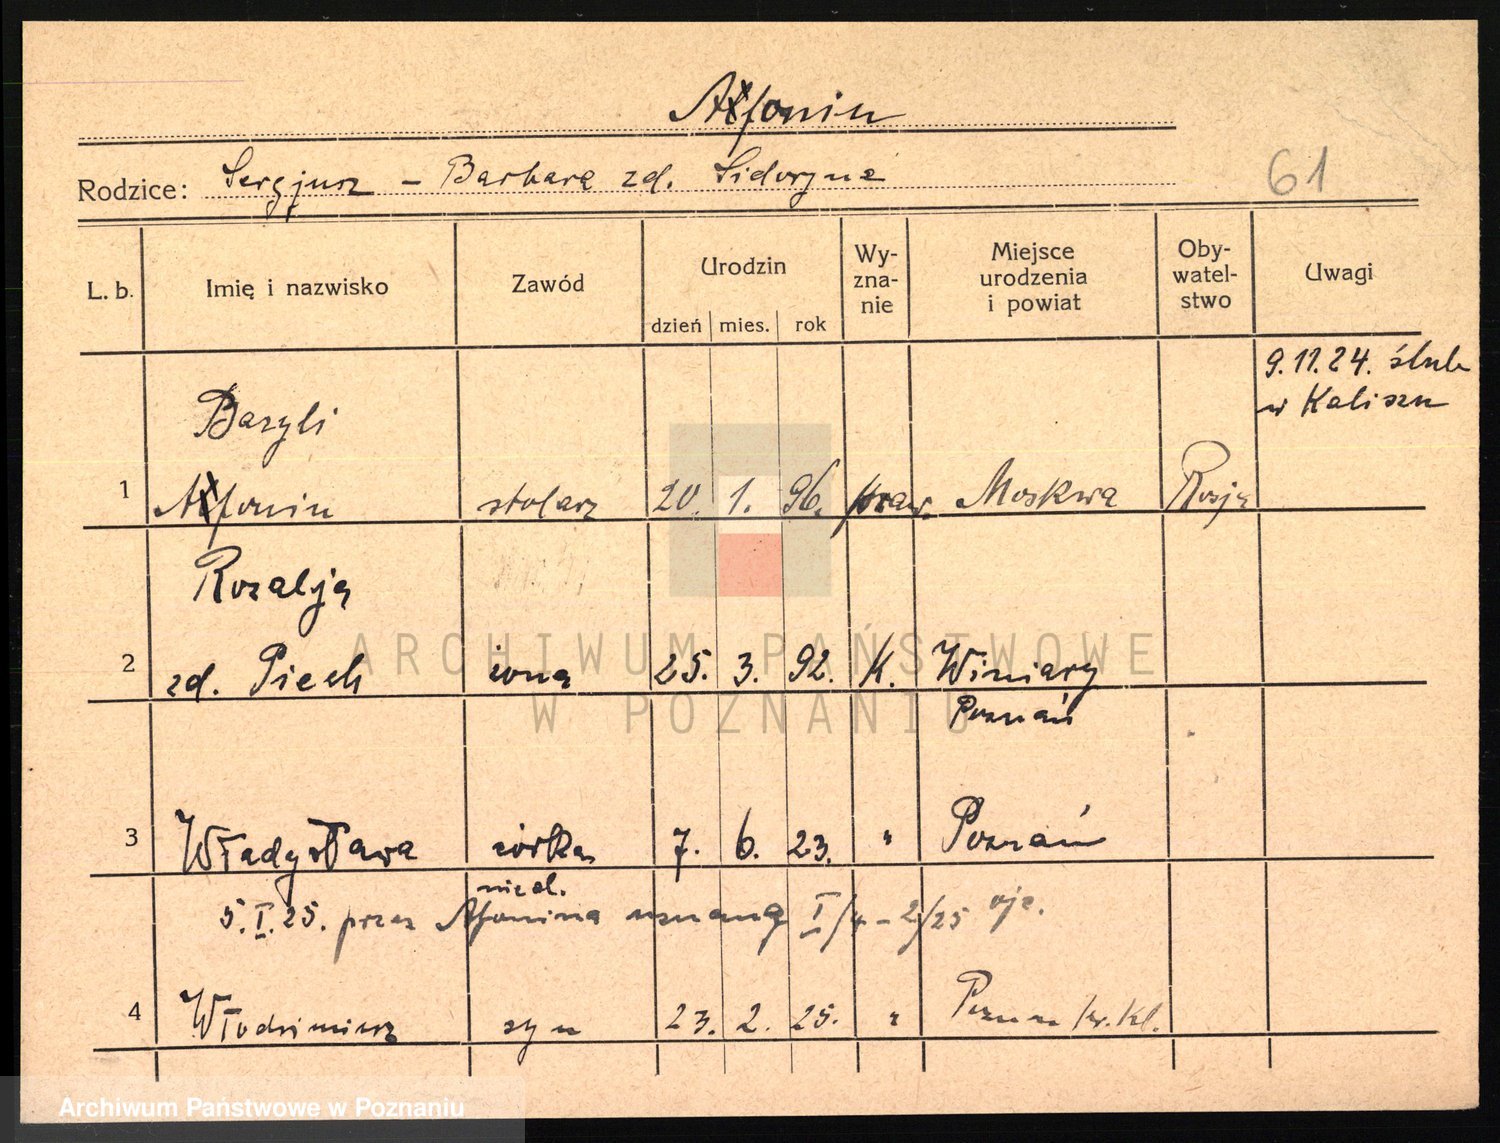 Afonin
Rodzice: Sergjusz – Barbara zd. Sidoryna
61
L. b.
Imię i nazwisko
Zawód
Urodzin
dzień mies. rok
Wy-
zna-
nie
Miejsce
urodzenia
i powiat
Oby-
watel-
stwo
Uwagi
9.11.24. ślub
w Kaliszu
Bazyli
1 Afonin stolarz 20. 1. 96. praw. Moskwa Rosja
Rozalja
2 zd. Piech żona 25. 3. 92. K. Winiary
Poznań
3 Władysława córka 7. 6. 23. " Poznań
niesl.
5.I.25. przez Afonina uznana I/4 – 2/25
4 Włodzimierz syn 23. 2. 25. "
ARCHIWUM PAŃSTWOWE
W POZNANIU
Archiwum Państwowe w Poznaniu